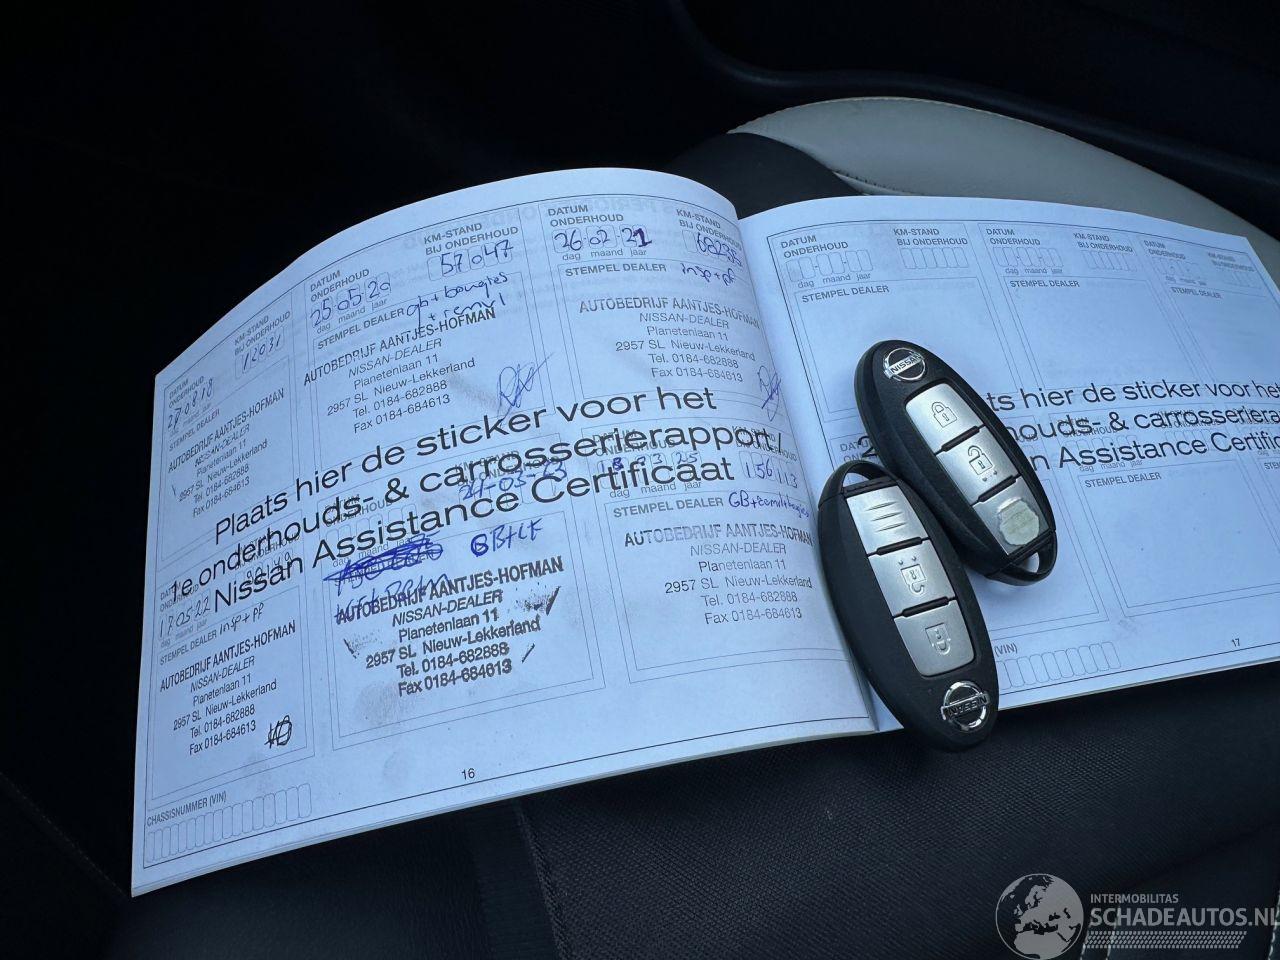 DATUM ONDERHOUD
27 08 18
dag maand jaar
KM-STAND BIJ ONDERHOUD
12031
STEMPEL DEALER
AUTOBEDRIJF AANTJES-HOFMAN
NISSAN-DEALER
Planetenlaan 11
2957 SL Nieuw-Lekkerland
Tel. 0184-682888
Fax 0184-684613
DATUM ONDERHOUD
25 05 20
dag maand jaar
KM-STAND BIJ ONDERHOUD
57047
STEMPEL DEALER
AUTOBEDRIJF AANTJES-HOFMAN
NISSAN-DEALER
Planetenlaan 11
2957 SL Nieuw-Lekkerland
Tel. 0184-682888
Fax 0184-684613
DATUM ONDERHOUD
26 02 21
dag maand jaar
KM-STAND BIJ ONDERHOUD
STEMPEL DEALER
insp + pf
AUTOBEDRIJF AANTJES-HOFMAN
NISSAN-DEALER
Planetenlaan 11
2957 SL Nieuw-Lekkerland
Tel. 0184-682888
Fax 0184-684613
Plaats hier de sticker voor het
1e onderhouds- & carrosserierapport /
Nissan Assistance Certificaat
17 05 22
dag maand jaar
STEMPEL DEALER
insp + pf
AUTOBEDRIJF AANTJES-HOFMAN
NISSAN-DEALER
Planetenlaan 11
2957 SL Nieuw-Lekkerland
Tel. 0184-682888
Fax 0184-684613
AUTOBEDRIJF AANTJES-HOFMAN
NISSAN-DEALER
Planetenlaan 11
2957 SL Nieuw-Lekkerland
Tel. 0184-682888
Fax 0184-684613
156113
dag maand jaar
STEMPEL DEALER
AUTOBEDRIJF AANTJES-HOFMAN
NISSAN-DEALER
Planetenlaan 11
2957 SL Nieuw-Lekkerland
Tel. 0184-682888
Fax 0184-684613
CHASSISNUMMER (VIN)
16
DATUM ONDERHOUD
dag maand jaar
KM-STAND BIJ ONDERHOUD
STEMPEL DEALER
DATUM ONDERHOUD
dag maand jaar
KM-STAND BIJ ONDERHOUD
STEMPEL DEALER
DATUM ONDERHOUD
dag maand jaar
KM-STAND BIJ ONDERHOUD
STEMPEL DEALER
ts hier de sticker voor het
houds- & carrosseriera
an Assistance Certific
STEMPEL DEALER
(VIN)
17
NISSAN
NISSAN
INTERMOBILITAS
SCHADEAUTOS.NL